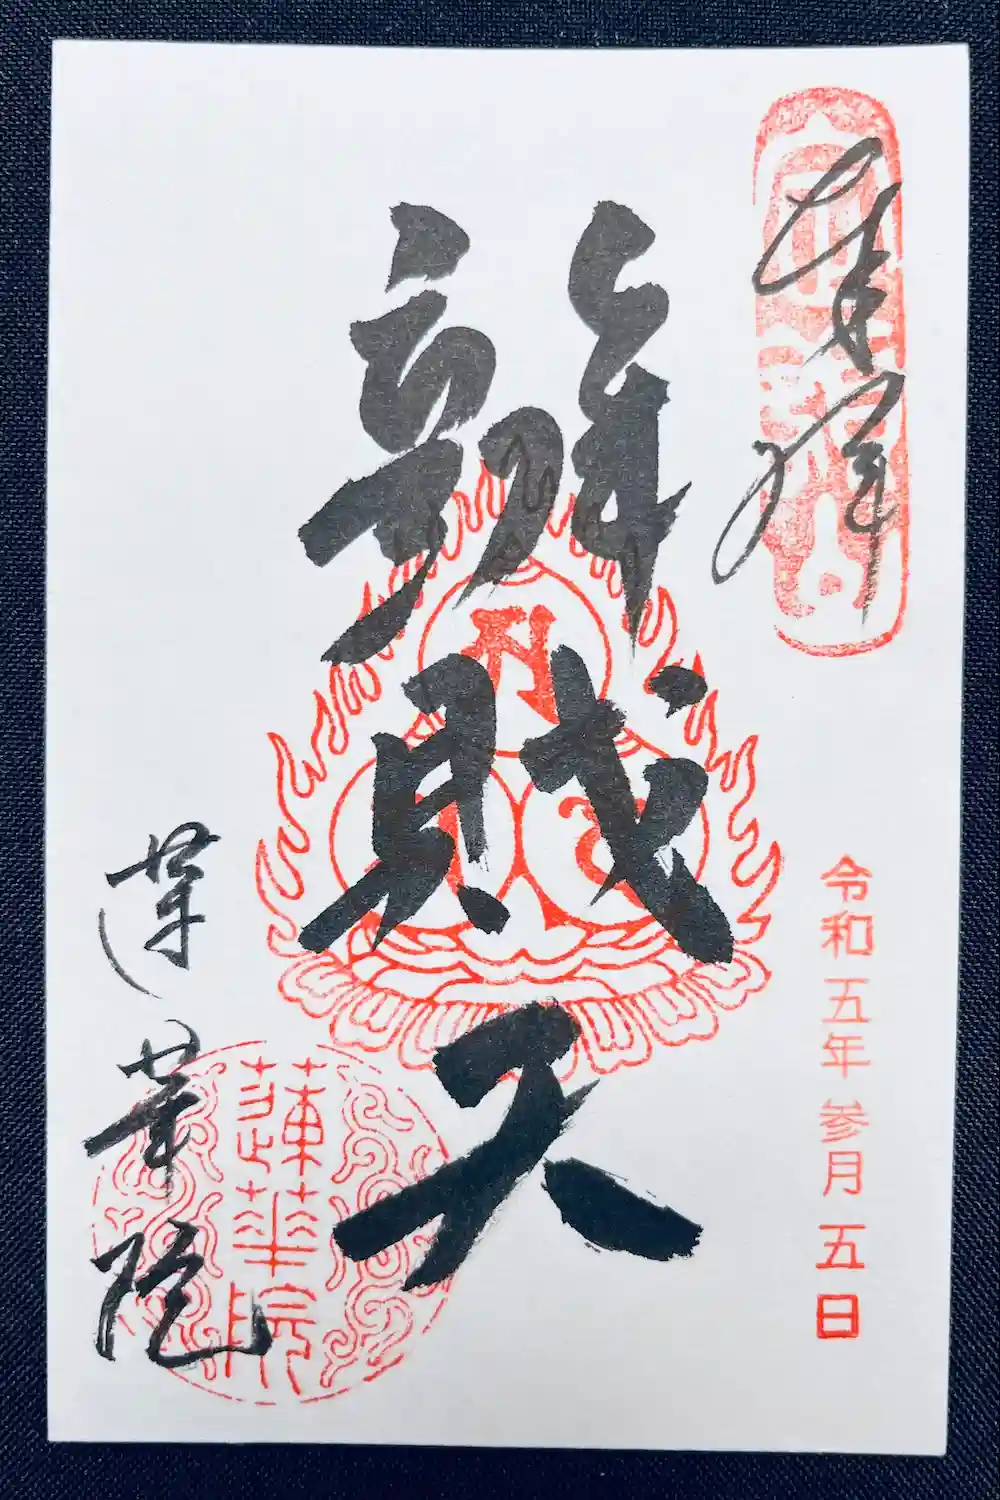 奉拝
令和五年参月五日
辨財天
蓮華院
蓮華院